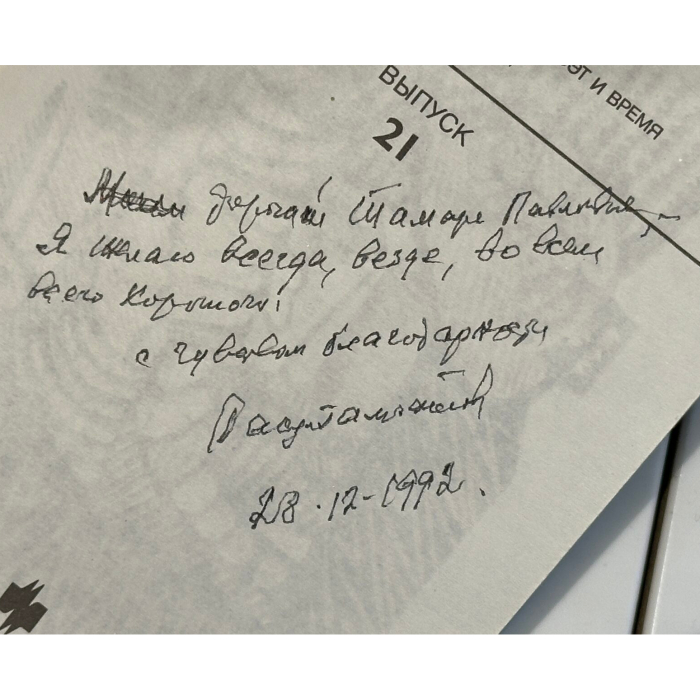 ЭТ И ВРЕМЯ
ВЫПУСК
21
дорогой Тамаре Павловне,
Я желаю всегда, везде, во всем
всего хорошого!
с чувством благодарности
28.12-1992.